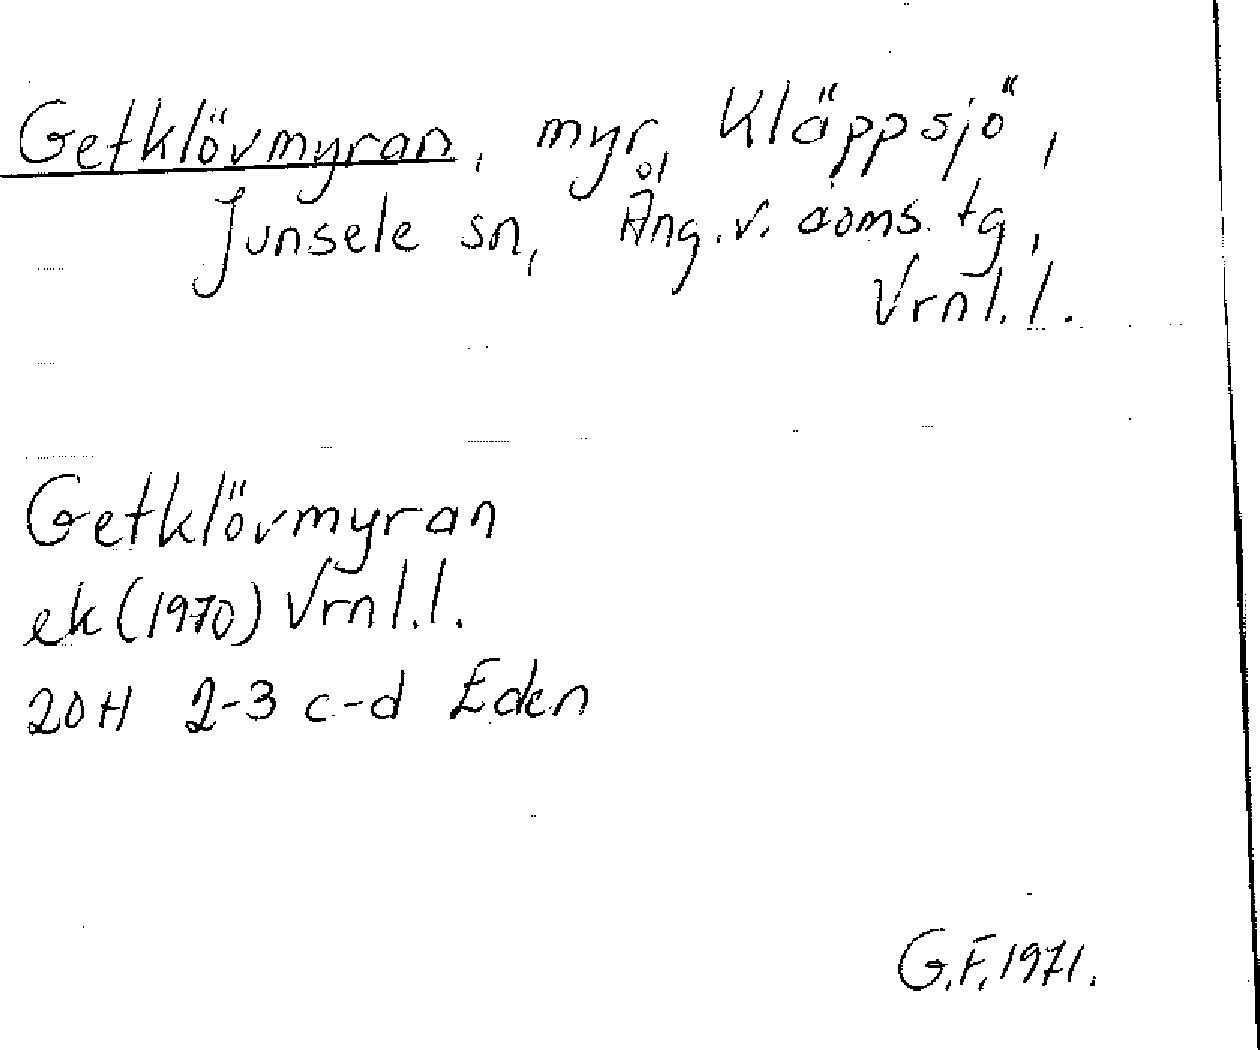 Getklövmyran, myr, Kläppsjö,
Junsele sn, Ång. v. doms. tg,
Vrnl. l.
Getklövmyran
ek (1970) Vrnl. l.
20H 2-3 c-d Eden
G.F. 1971.